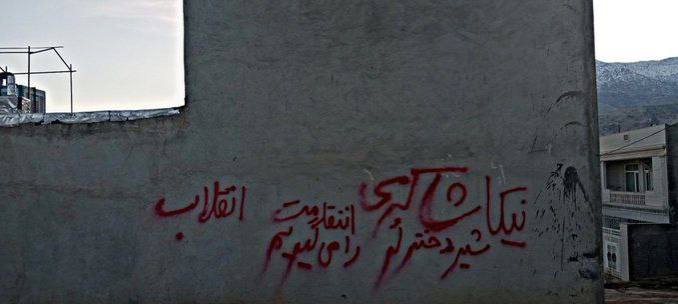 نیکا شاکرمی
شیر دختر لُر
انتقامت
را می گیریم
انقلاب